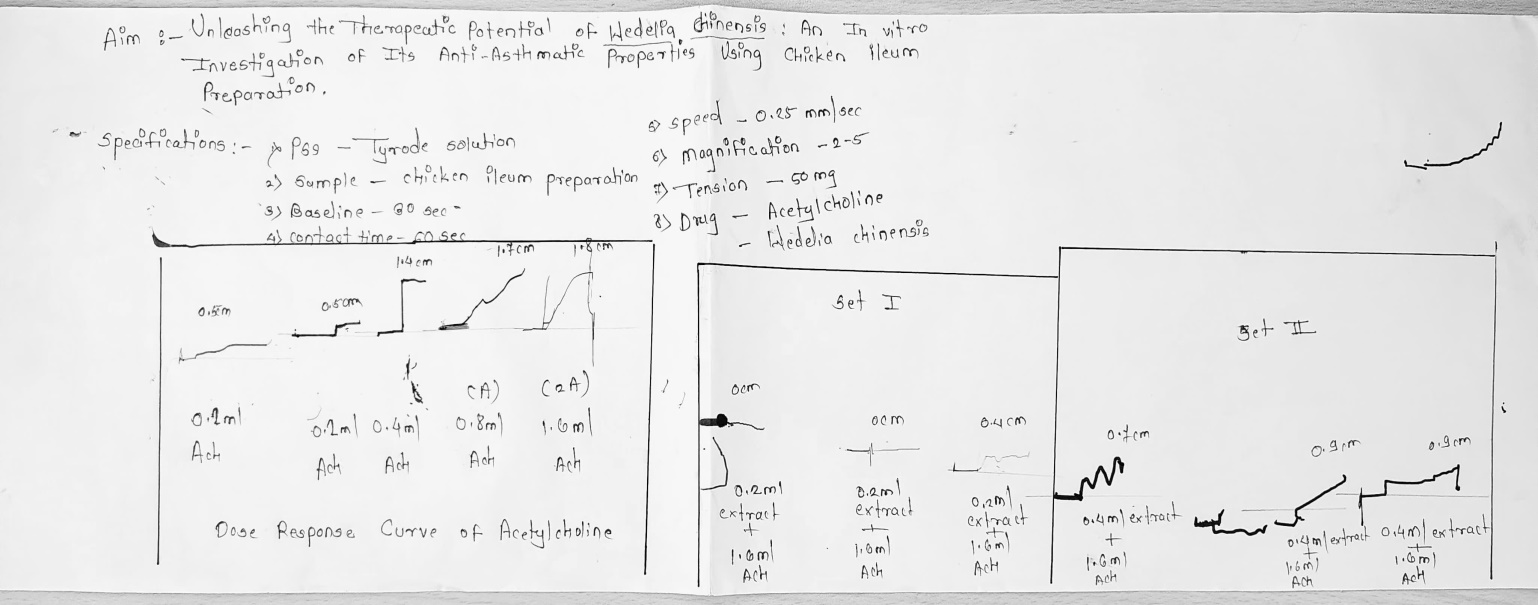 Aim :- Unleashing the Therapeutic Potential of Wedelia chinensis : An In vitro
Investigation of Its Anti-Asthmatic Properties Using Chicken Ileum
Preparation.
Specifications :- 1) PSS - Tyrode solution
2) Sample - chicken ileum preparation
3) Baseline - 30 sec -
4) contact time - 60 sec
5) speed - 0.25 mm/sec
6) Magnification - 2-5
7) Tension - 50 mg
8) Drug - Acetylcholine
- Wedelia chinensis
0.5cm 0.5cm 1.4cm 1.7cm 1.8cm
(A) (2A)
0.2ml 0.2ml 0.4ml 0.8ml 1.6ml
Ach Ach Ach Ach Ach
Dose Response Curve of Acetylcholine
Set I
0cm 0cm 0.4cm
0.2ml 0.2ml 0.2ml
extract extract extract
+ + +
1.6ml 1.6ml 1.6ml
Ach Ach Ach
Set II
0.7cm 0.9cm 0.9cm
0.4ml extract 0.4ml extract 0.4ml extract
+ + +
1.6ml 1.6ml 1.6ml
Ach Ach Ach